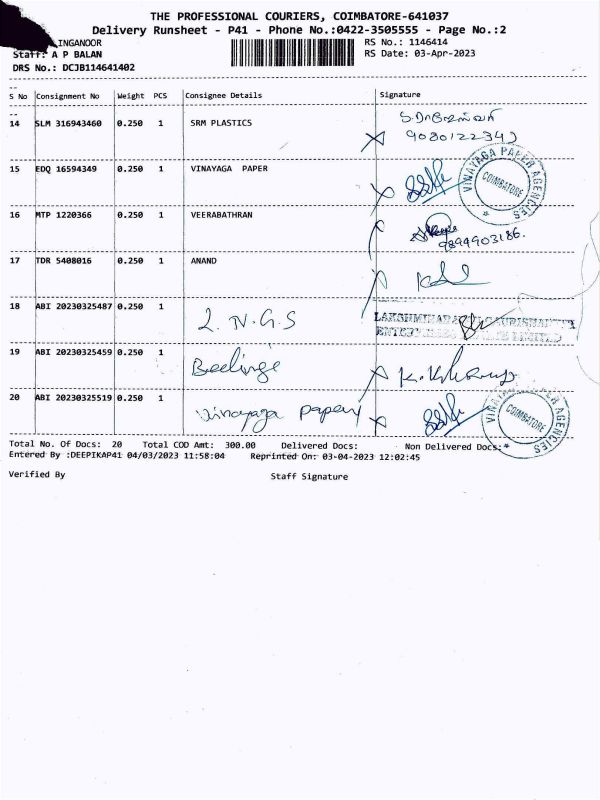 THE PROFESSIONAL COURIERS, COIMBATORE-641037
Delivery Runsheet - P41 - Phone No.:0422-3505555 - Page No.:2
INGANOOR RS No.: 1146414
Staff: A P BALAN RS Date: 03-Apr-2023
DRS No.: DCJB114641402
S No Consignment No Weight PCS Consignee Details Signature
14 SLM 316943460 0.250 1 SRM PLASTICS
15 EDQ 16594349 0.250 1 VINAYAGA PAPER
VINAYAGA PAPER AGENCIES
COIMBATORE
16 MTP 1220366 0.250 1 VEERABATHRAN
9894903186.
17 TDR 5408016 0.250 1 ANAND
18 ABI 20230325487 0.250 1 L.N.G.S
19 ABI 20230325459 0.250 1
20 ABI 20230325519 0.250 1 Vinayaga Papery
VINAYAGA PAPER AGENCIES
COIMBATORE
Total No. Of Docs: 20 Total COD Amt: 300.00 Delivered Docs: Non Delivered Docs:
Entered By :DEEPIKAP41 04/03/2023 11:58:04 Reprinted On: 03-04-2023 12:02:45
Verified By Staff Signature